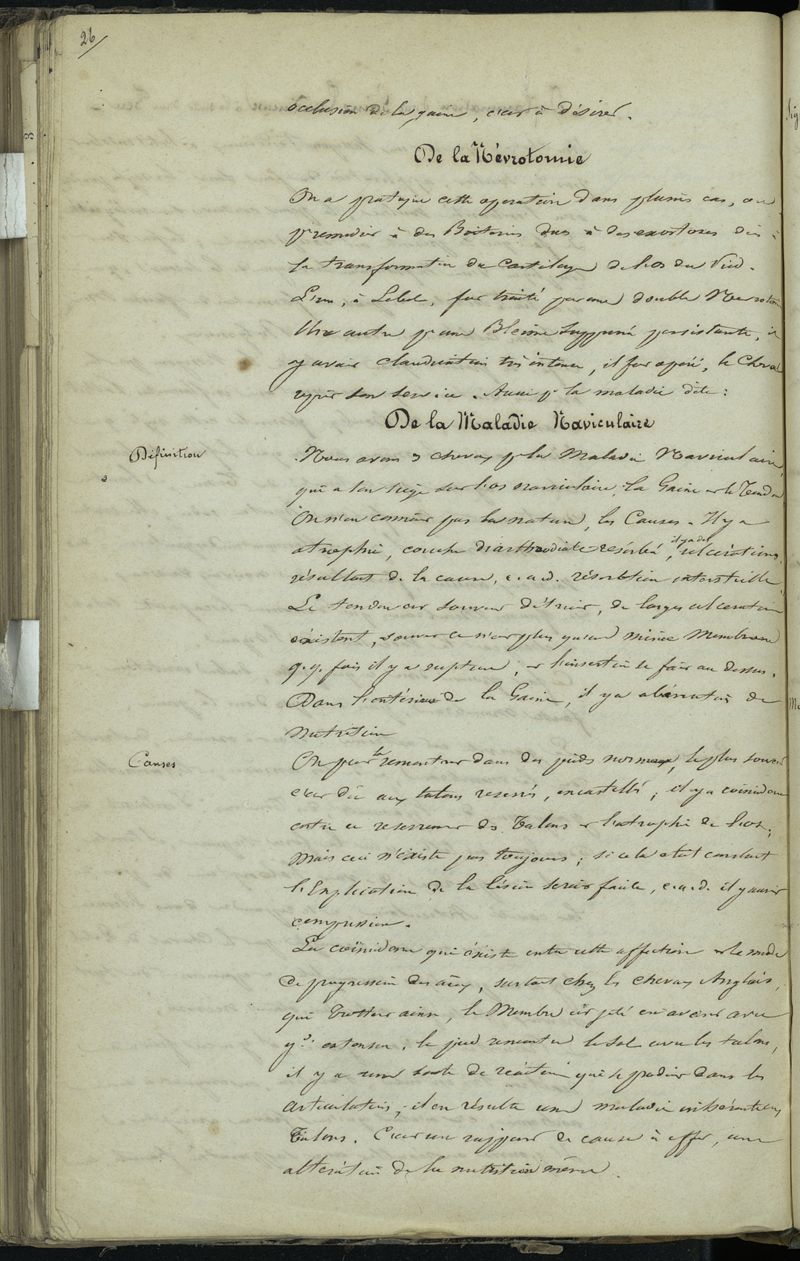 26/
occlusion de la gaine, c'est à désirer.
De la Névrotomie
On a pratiqué cette operation dans plusrs cas, on
p. remedier à des Boiteries dues à des exostoses dûs à
la transformation du Cartilage de l'os du Pied.
L'un, à Lebel, fut traité par une double Nevrotomie
Un autre p. une Bleime Suppurée persistante, il
y avait claudication très intense, il fut opéré, le Cheval
reprit son service. Aussi p. la maladie dite :
De la Maladie Naviculaire
Définition
Nous avons 3 chevaux p. la Maladie Naviculaire,
qui a son siège sur l'os naviculaire, la Gaine et le Tendon
On n'en connait pas la nature, les Causes. Il y a
atrophie, couche diarthrodiale résorbée, il y a des ulcérations
résultant de la cause, c. a. d. résorbtion interstitielle.
Le tendon est souvent détruit, de larges ulcerations
existent, souvent ce n'est plus qu'une mince Membrane
q.q. fois il y a rupture, et l'insertion se fait au dessus.
Dans l'intérieur de la Gaine, il y a aberration de
nutrition
Causes
On peut la rencontrer dans des pieds normaux, le plus souvent
c'est dû aux talons reserrés, encastelés, il y a coincidence
entre ce reserrement des Talons et l'atrophie de l'os,
mais ceci n'existe pas toujours ; si cela etait constant
l'Explication de la lésion serait facile, c. a. d. il y aurait
compression.
La coïncidence qui existe entre cette affection et le mode
de progression des aux, surtout chez les chevaux Anglais,
qui Trottent ainsi, le Membre est jeté en avant avec
gde extension, le pied rencontre le sol avec les talons,
il y a une sorte de réaction qui se produit dans les
articulations, il en résulte une maladie inhérente aux
Talons. C'est un rapport de cause à effet, une
altération de la nutrition même.